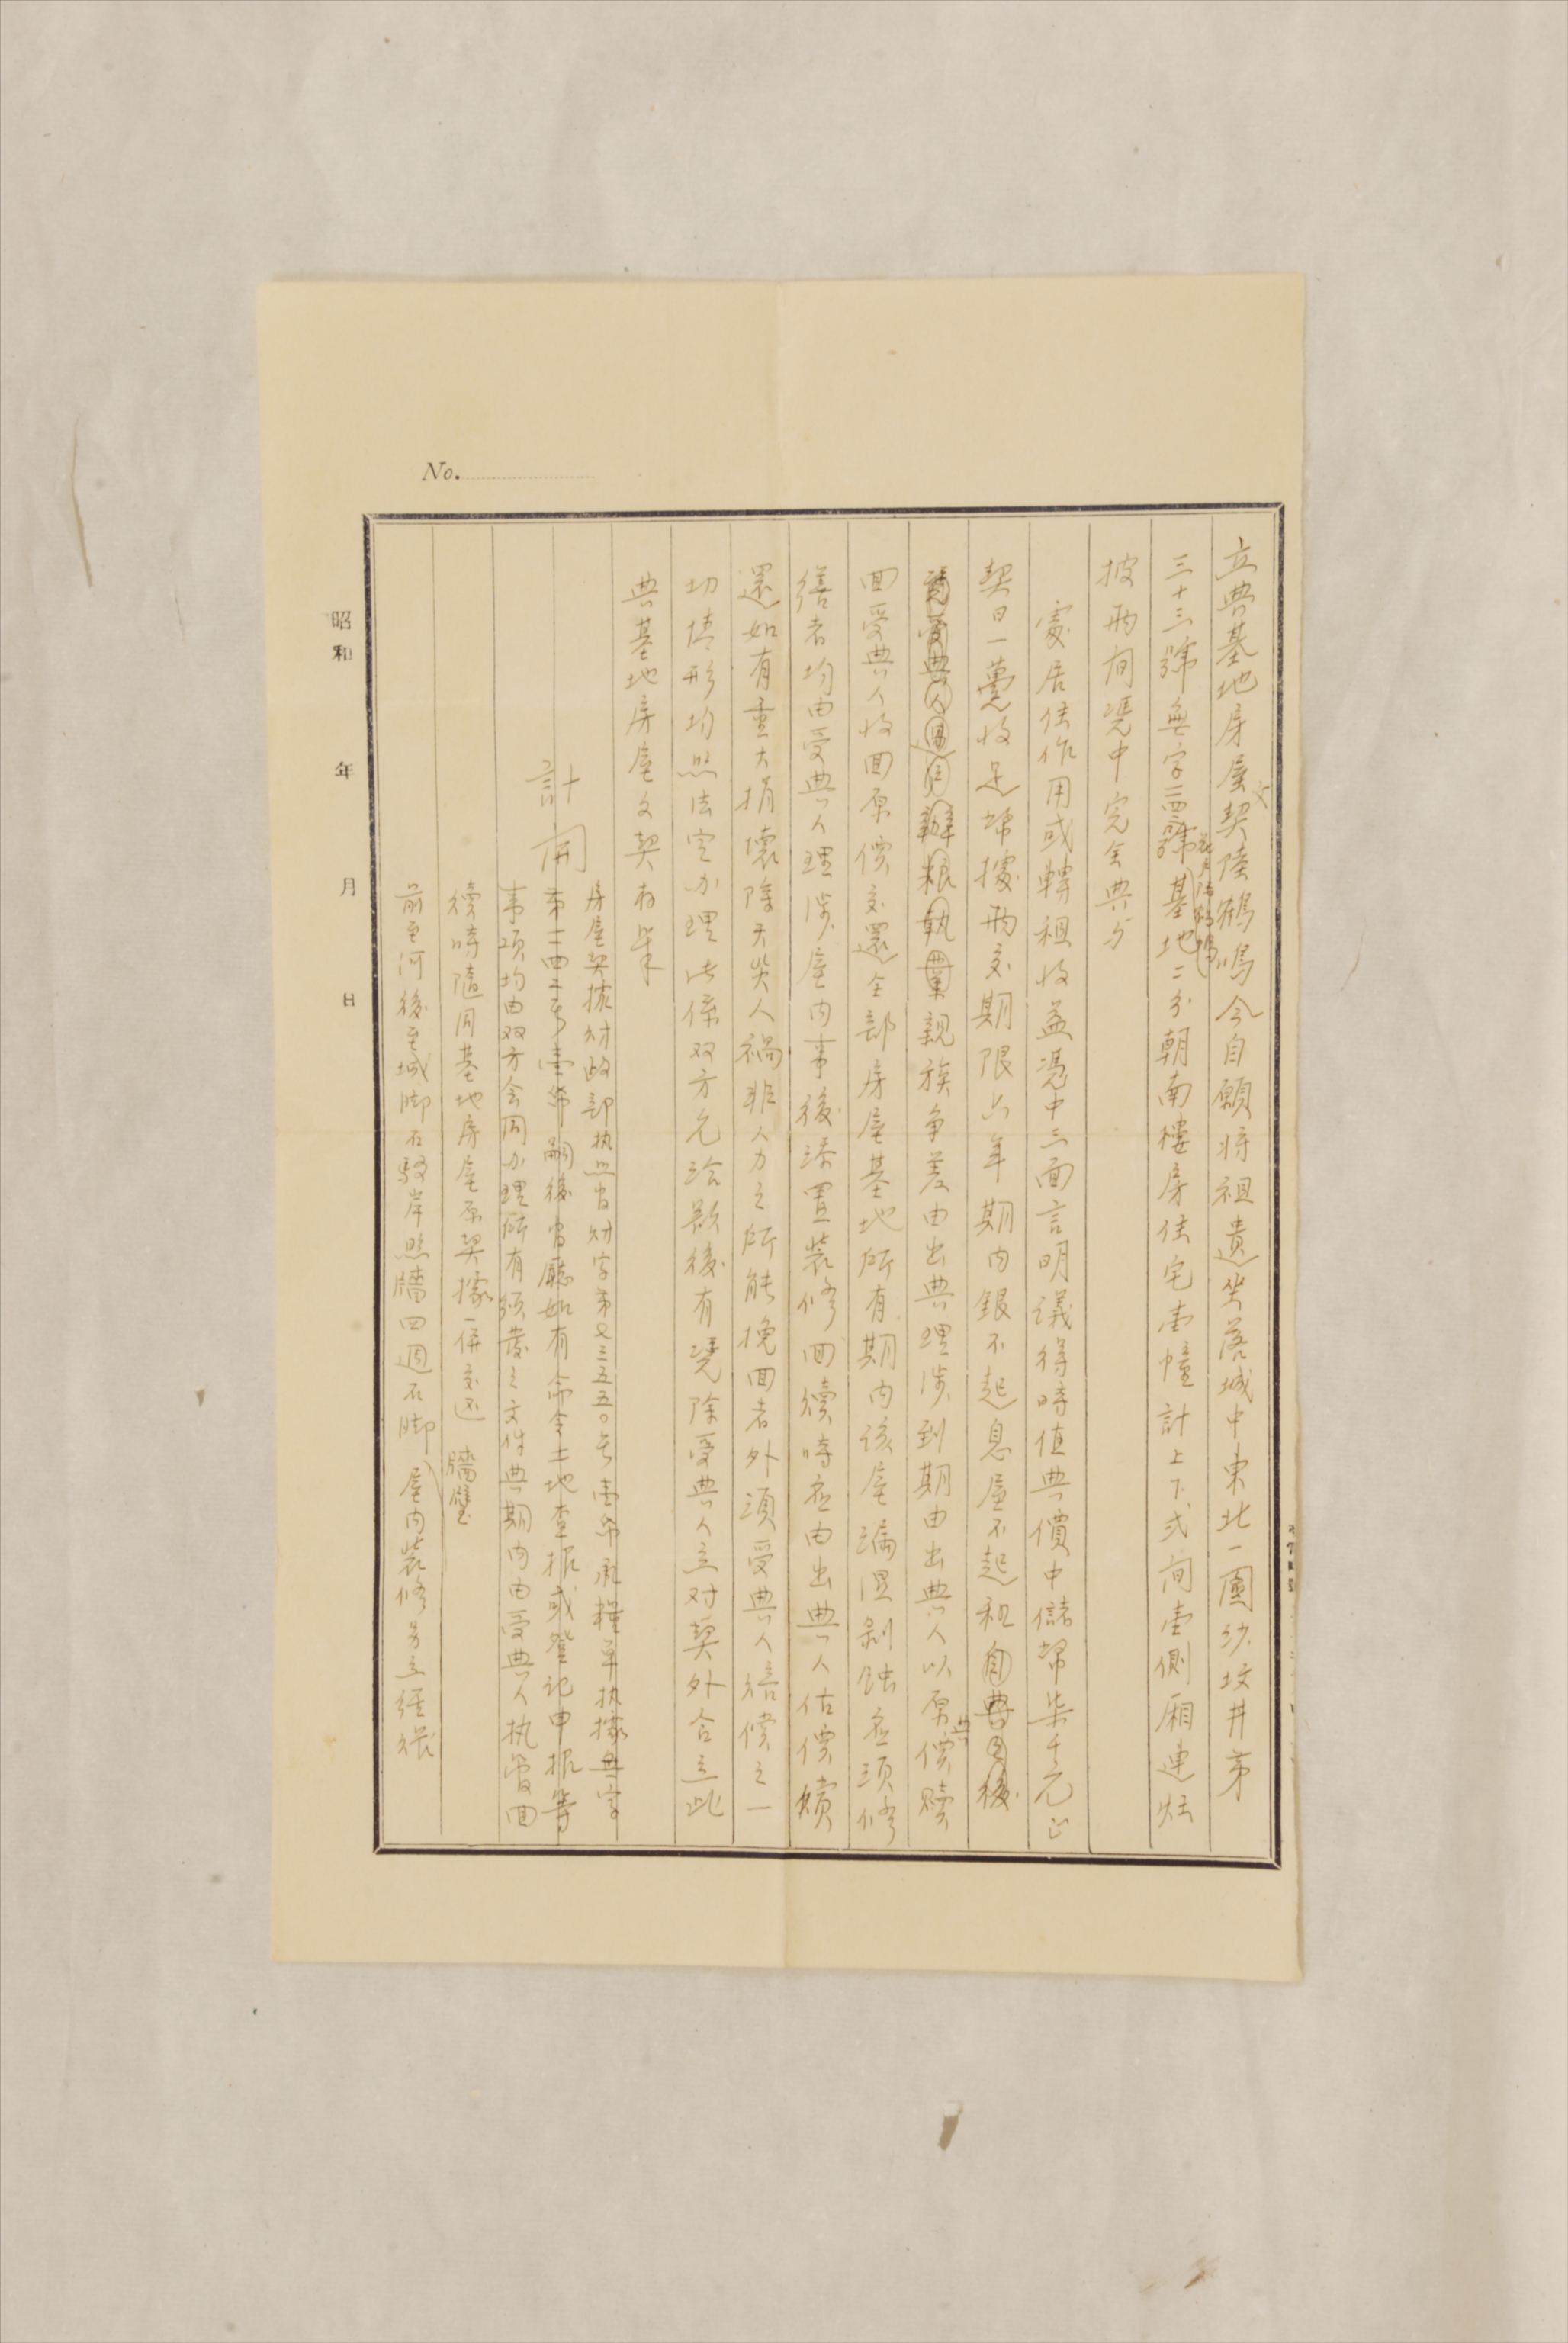 立典基地房屋文契陸鶴鳴今自願将祖遺坐落城中東北一圖沙坟井苐
三十三號無字西號基地二分朝南樓房住宅壹幢計上下弍间壹側廂連灶
披兩间凴中完全典与
處居住作用或轉租收益憑中三面言明議得時值典價中儲幣柒千元正
契日一蔓收足幣據兩交期限六年期内銀不起息屋不起租自典日後
受典人居住辦粮執業親族争差由出典理涉到期由出典人以原典價贖
回受典人收回原價交還全部房屋基地所有期内该屋漏湿剝蝕应須修
繕者均由受典人理涉屋内事後添置裝修回續時应由出典人估價贖
還如有重大損壞除天災人禍非人力之所能挽回者外須受典人赔償之一
切情形均照法定办理此係双方允洽欵後有凴除受典人立対契外合立此
典基地房屋文契存案
計開
房屋契據财政部执照官财字苐七三五五〇号壹帋承糧单执據無字
苐一四二号壹帋嗣後官廳如有命令土地查报或登记申报等
事項均由双方会同办理所有颁發之文件典期内由受典人执管回
續時隨同基地房屋原契據一併交还 牆壁
前至河後至城脚石駁岸照牆四週石脚屋内裝修另立經摺
No.
昭和 年 月 日